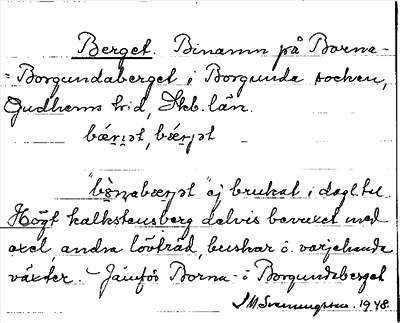 Berget. Binamn på Borna-
-Borgundaberget i Borgunda socken,
Gudhems hd, Skb. län.
bǽri̯ət, bǽrjət
"bö̀rnabærjət" ej brukat i dagl. tal
Högt kalkstensberg delvis bevuxet med
oxel, andra lövträd, buskar o. varjehanda
växter. – Jämför Borna- o Borgundaberget
1948.